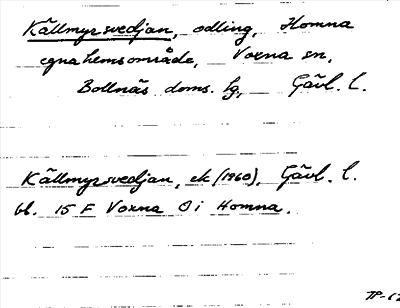 Källmyrsvedjan, odling, Homna
egnahemsområde, Voxna sn,
Bollnäs doms. lg, Gävl. l.
Källmyrsvedjan, ek (1960), Gävl. l.
bl. 15 F Voxna O i Homna.